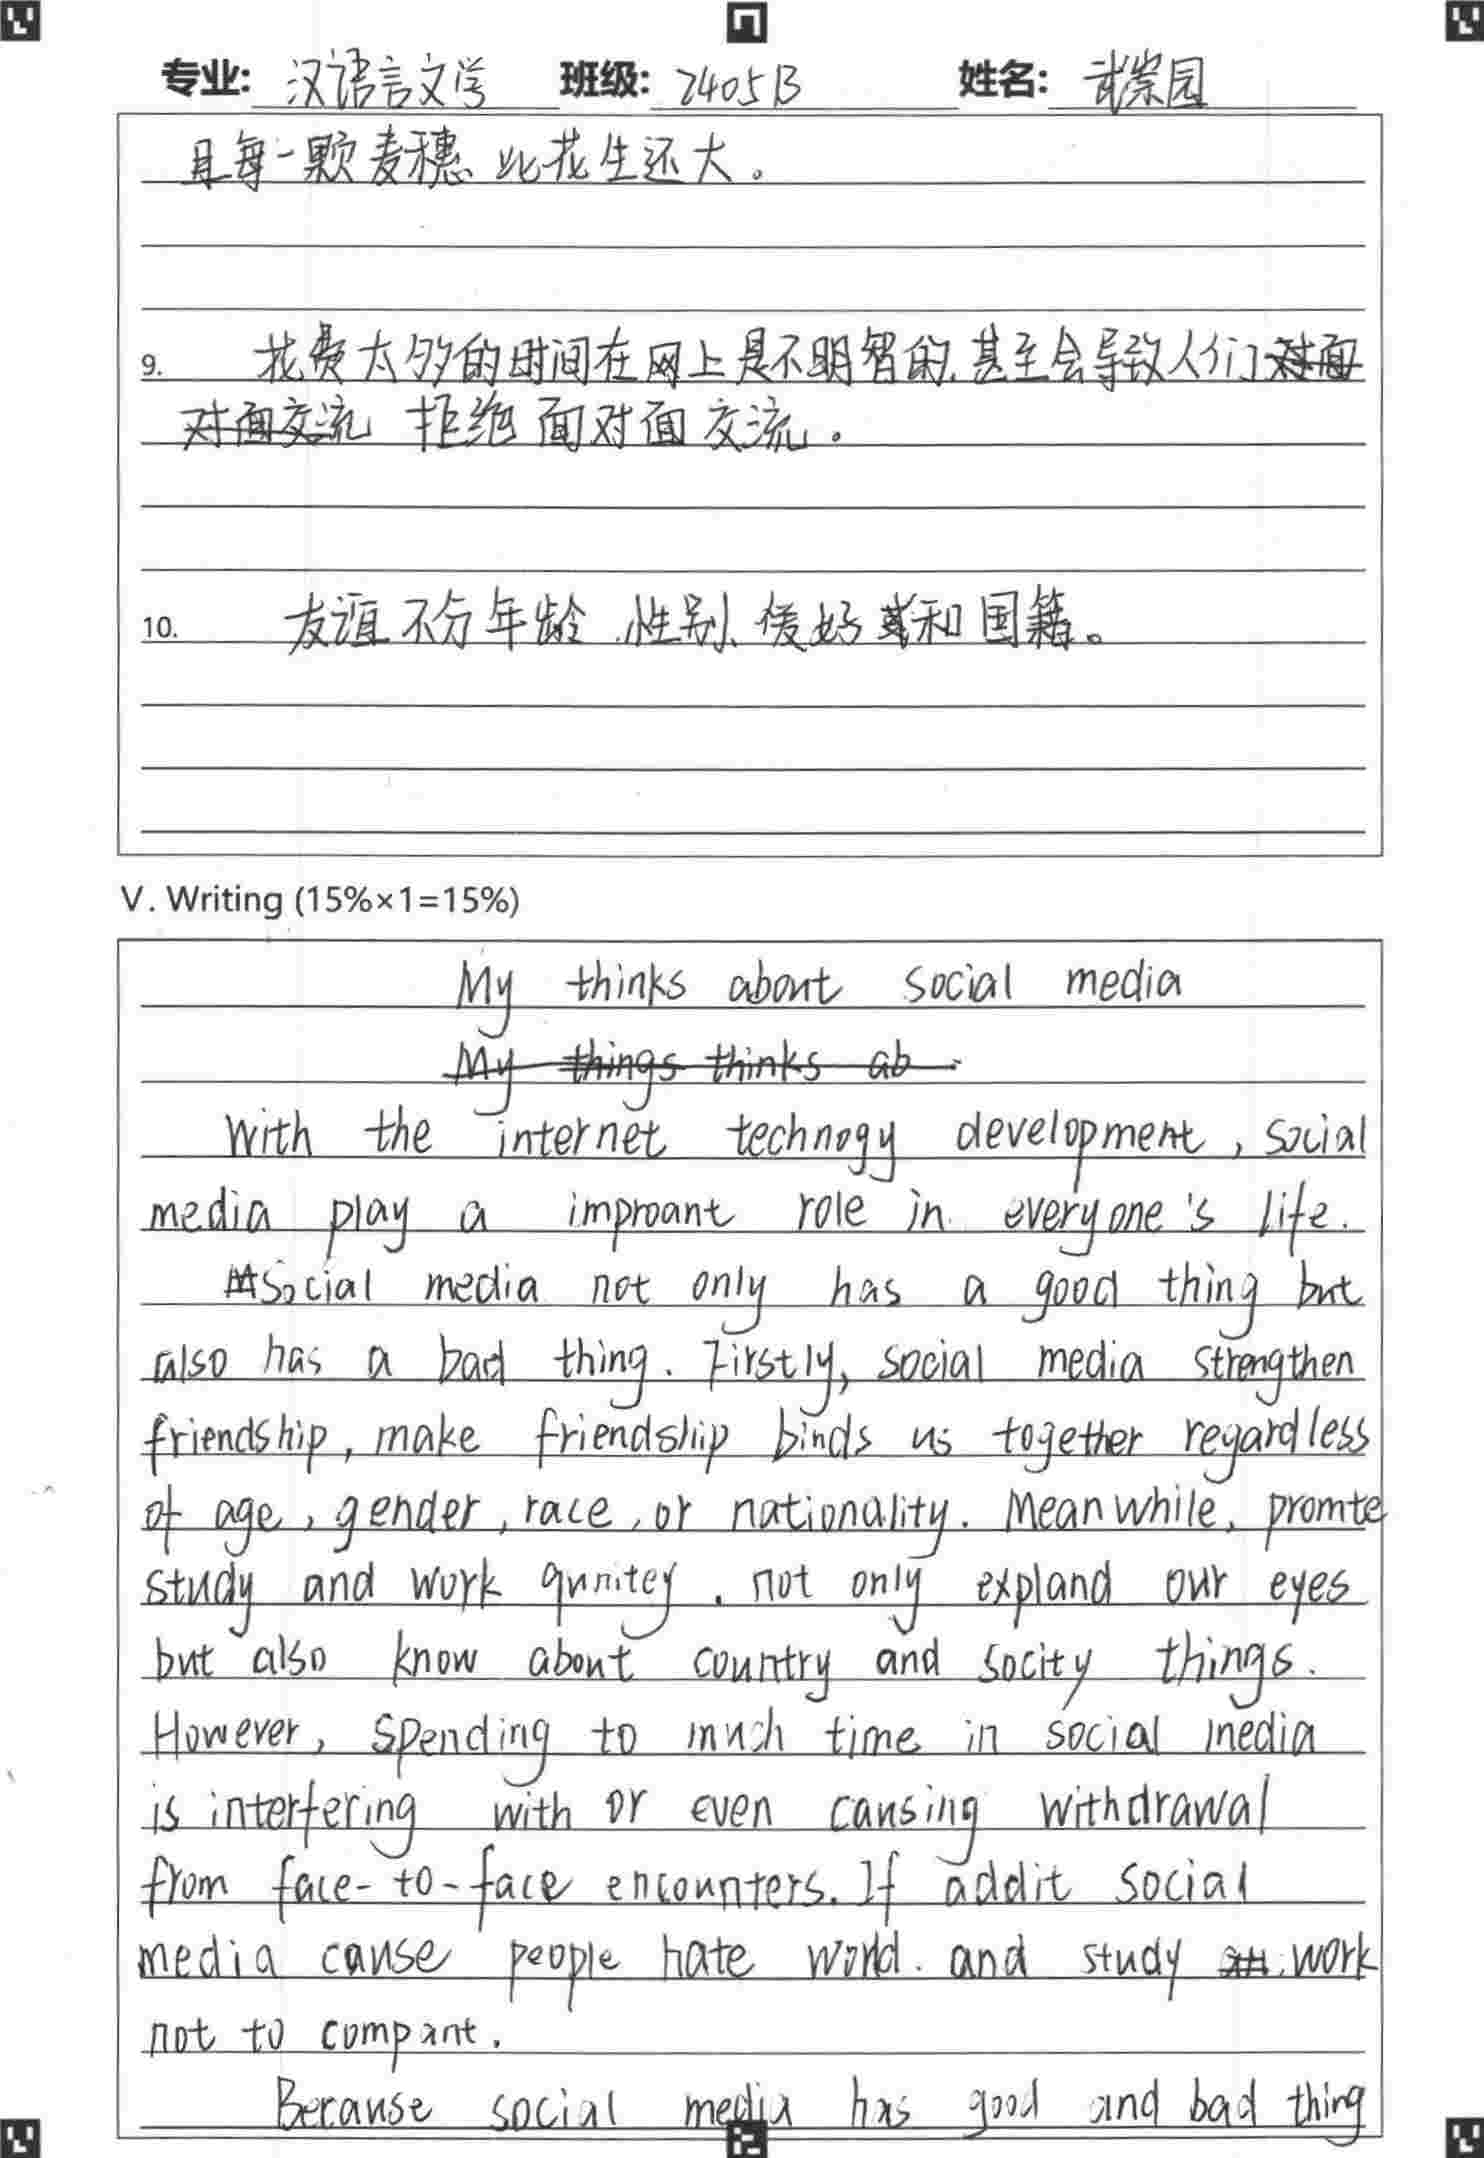 专业: 汉语言文学 班级: 2405B 姓名: 武崇园
且每一颗麦穗比花生还大。
9. 花费太多的时间在网上是不明智的,甚至会导致人们对面
对面交流 拒绝面对面交流。
10. 友谊不分年龄、性别、和国籍。
V. Writing (15%×1=15%)
My thinks about social media
My things thinks ab
With the internet technogy development, social
media play a improant role in everyone's life.
Social media not only has a good thing but
also has a bad thing. Firstly, social media strengthen
friendship, make friendship binds us together regardless
of age, gender, race, or nationality. Meanwhile, promte
study and work qunitey. not only expland our eyes
but also know about country and socity things.
However, spending to much time in social media
is interfering with or even causing withdrawal
from face-to-face encounters. If addit social
media cause people hate world. and study work
not to compant.
Because social media has good and bad thing